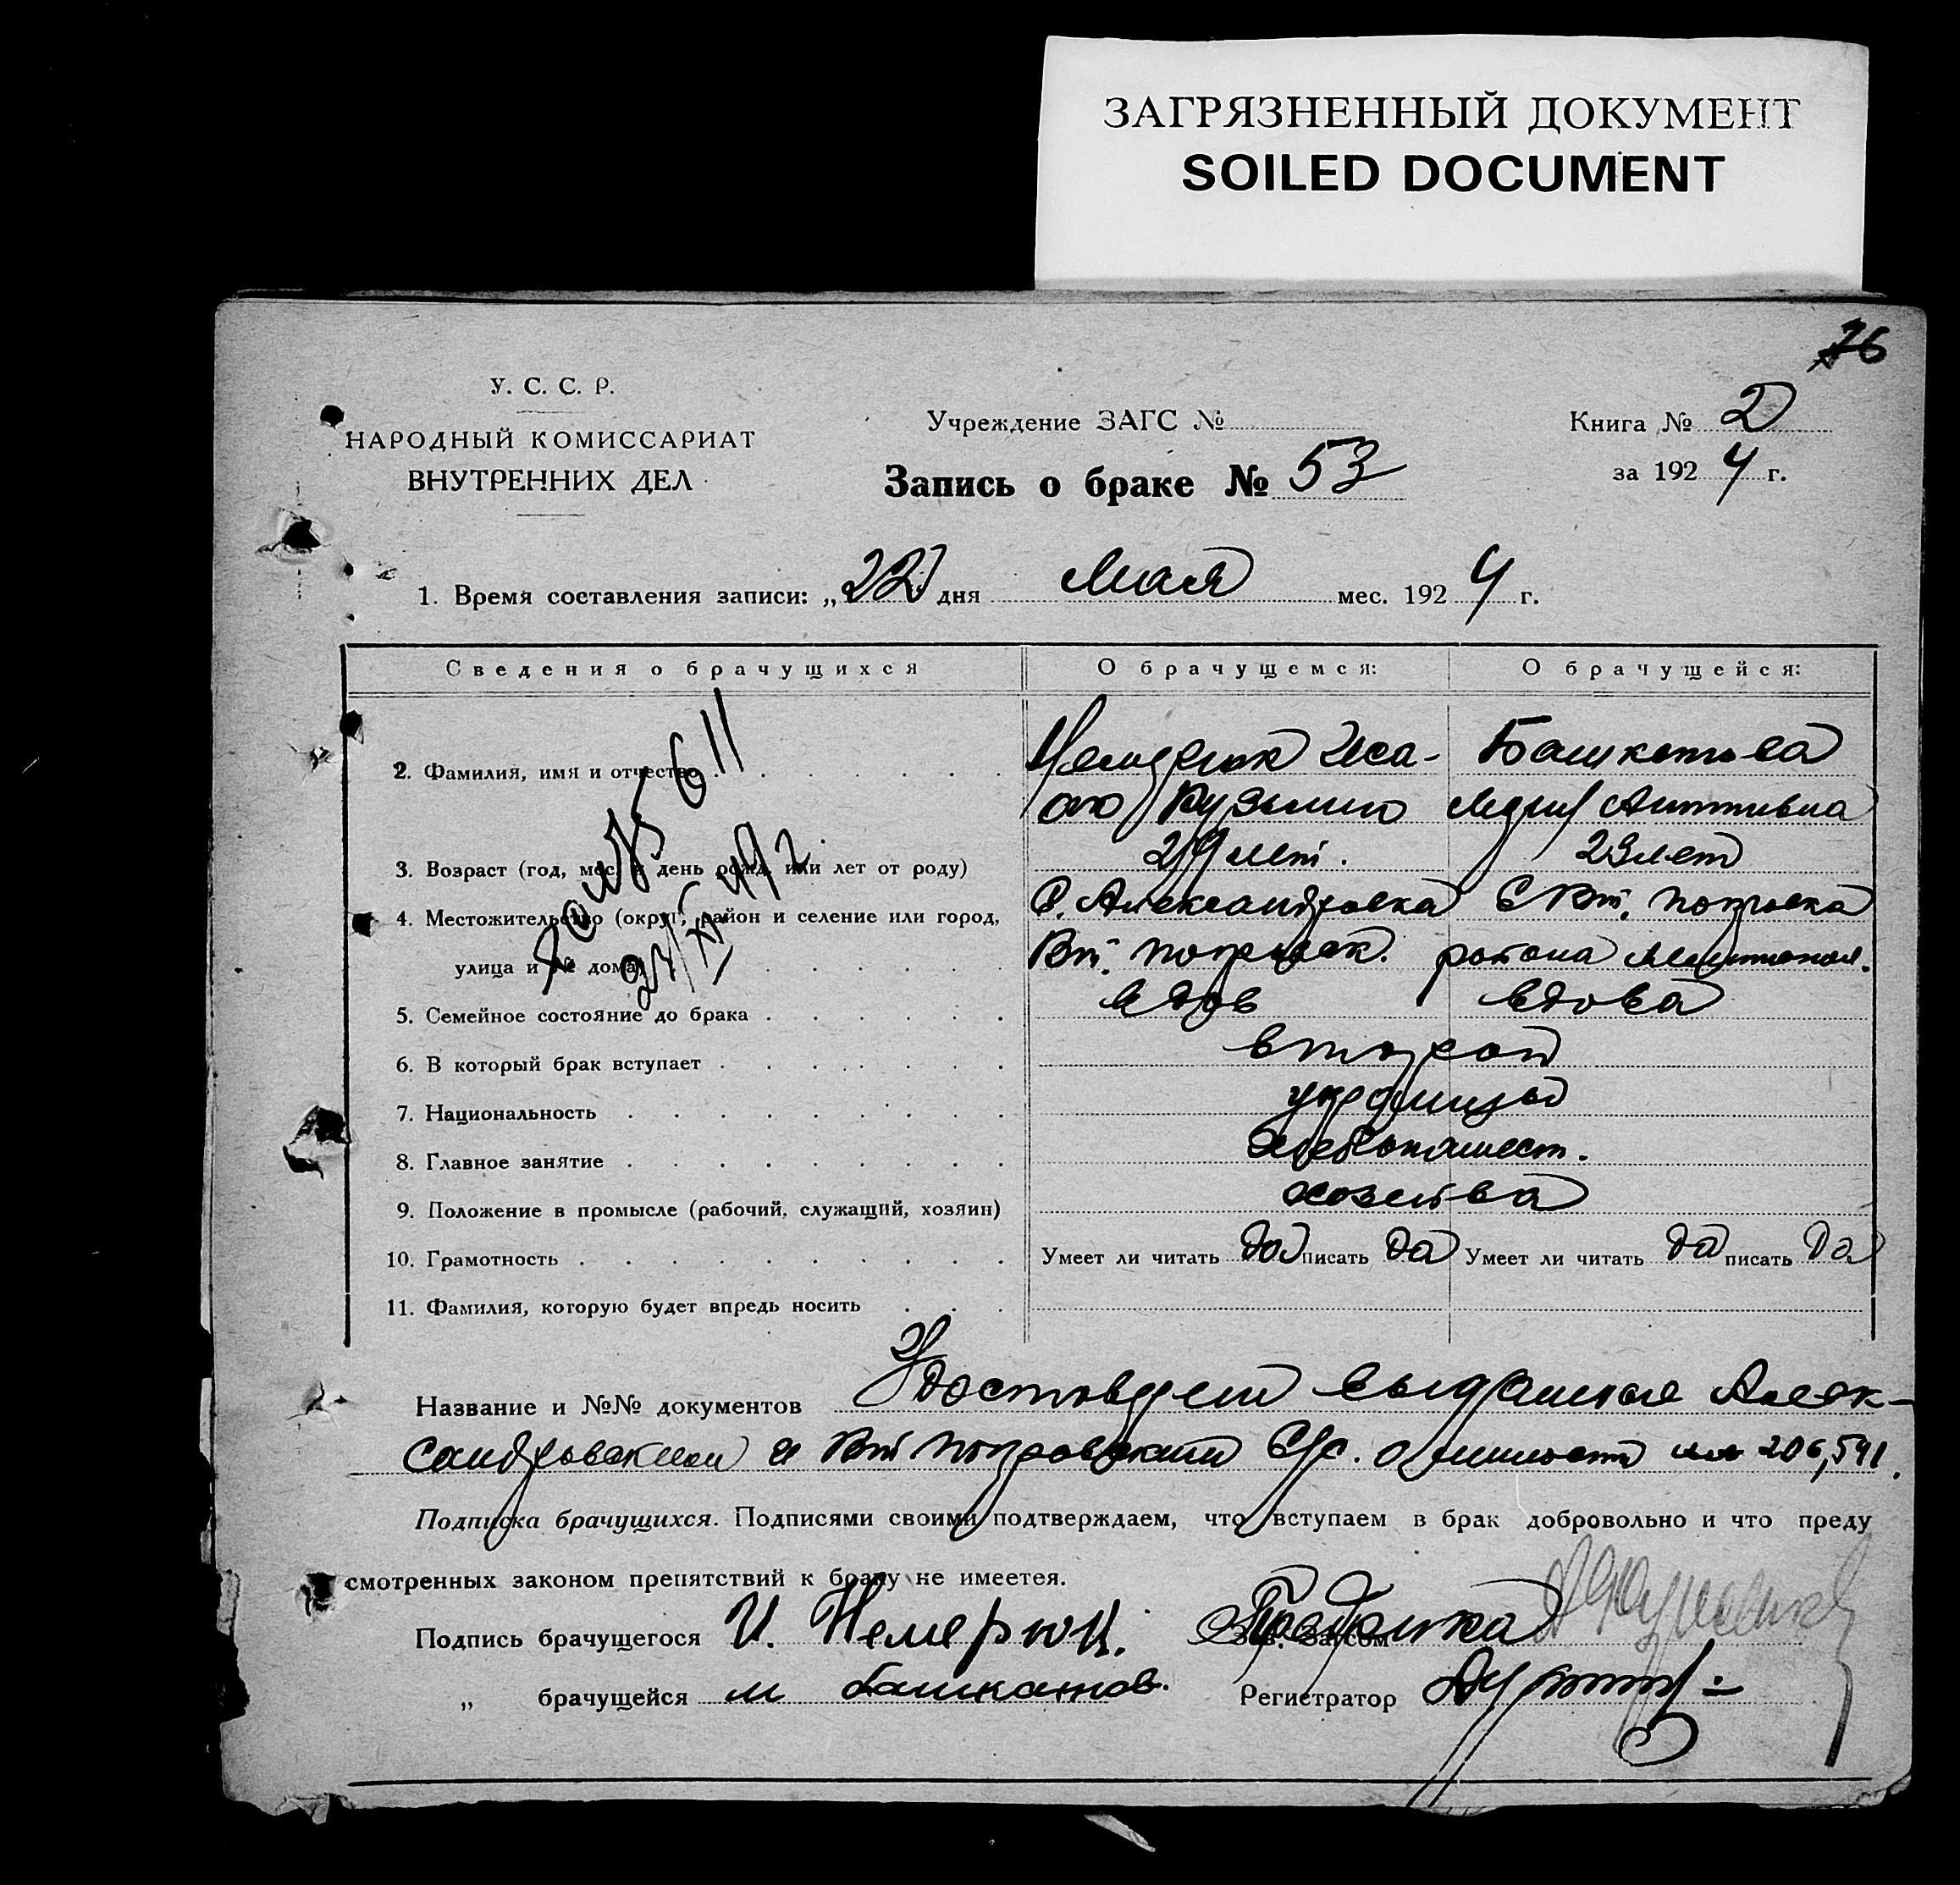 ЗАГРЯЗНЕННЫЙ ДОКУМЕНТ
SOILED DOCUMENT
76
У. С. С. Р.
НАРОДНЫЙ КОМИССАРИАТ
ВНУТРЕННИХ ДЕЛ
Учреждение ЗАГС №
Запись о браке № 53
Книга № 2
за 1924 г.
1. Время составления записи: „22" дня Мая мес. 1924 г.
Сведения о брачущихся О брачущемся: О брачущейся:
2. Фамилия, имя и отчество Иса- Башкатова
3. Возраст (год, мес. и день рожд. или лет от роду) 29 лет. 23 лет
4. Местожительство (округ, район и селение или город, С. Александровка С Вт. Покровка
улица и № дома) Вт. Покровск. района Мелитопол.
5. Семейное состояние до брака вдов вдова
6. В который брак вступает второй
7. Национальность украинцы
8. Главное занятие хлебопашест.
9. Положение в промысле (рабочий, служащий, хозяин) хозяева
10. Грамотность Умеет ли читать да писать да Умеет ли читать да писать да
11. Фамилия, которую будет впредь носить
Название и №№ документов Удостоверен выданные Алек-
сандровским и Вт Покровским С/с. о личности 206, 541.
Подписка брачущихся. Подписями своими подтверждаем, что вступаем в брак добровольно и что преду
смотренных законом препятствий к браку не имеется.
Подпись брачущегося И. Немерюк. Зав. Загсом
„ брачущейся м башкатов. Регистратор